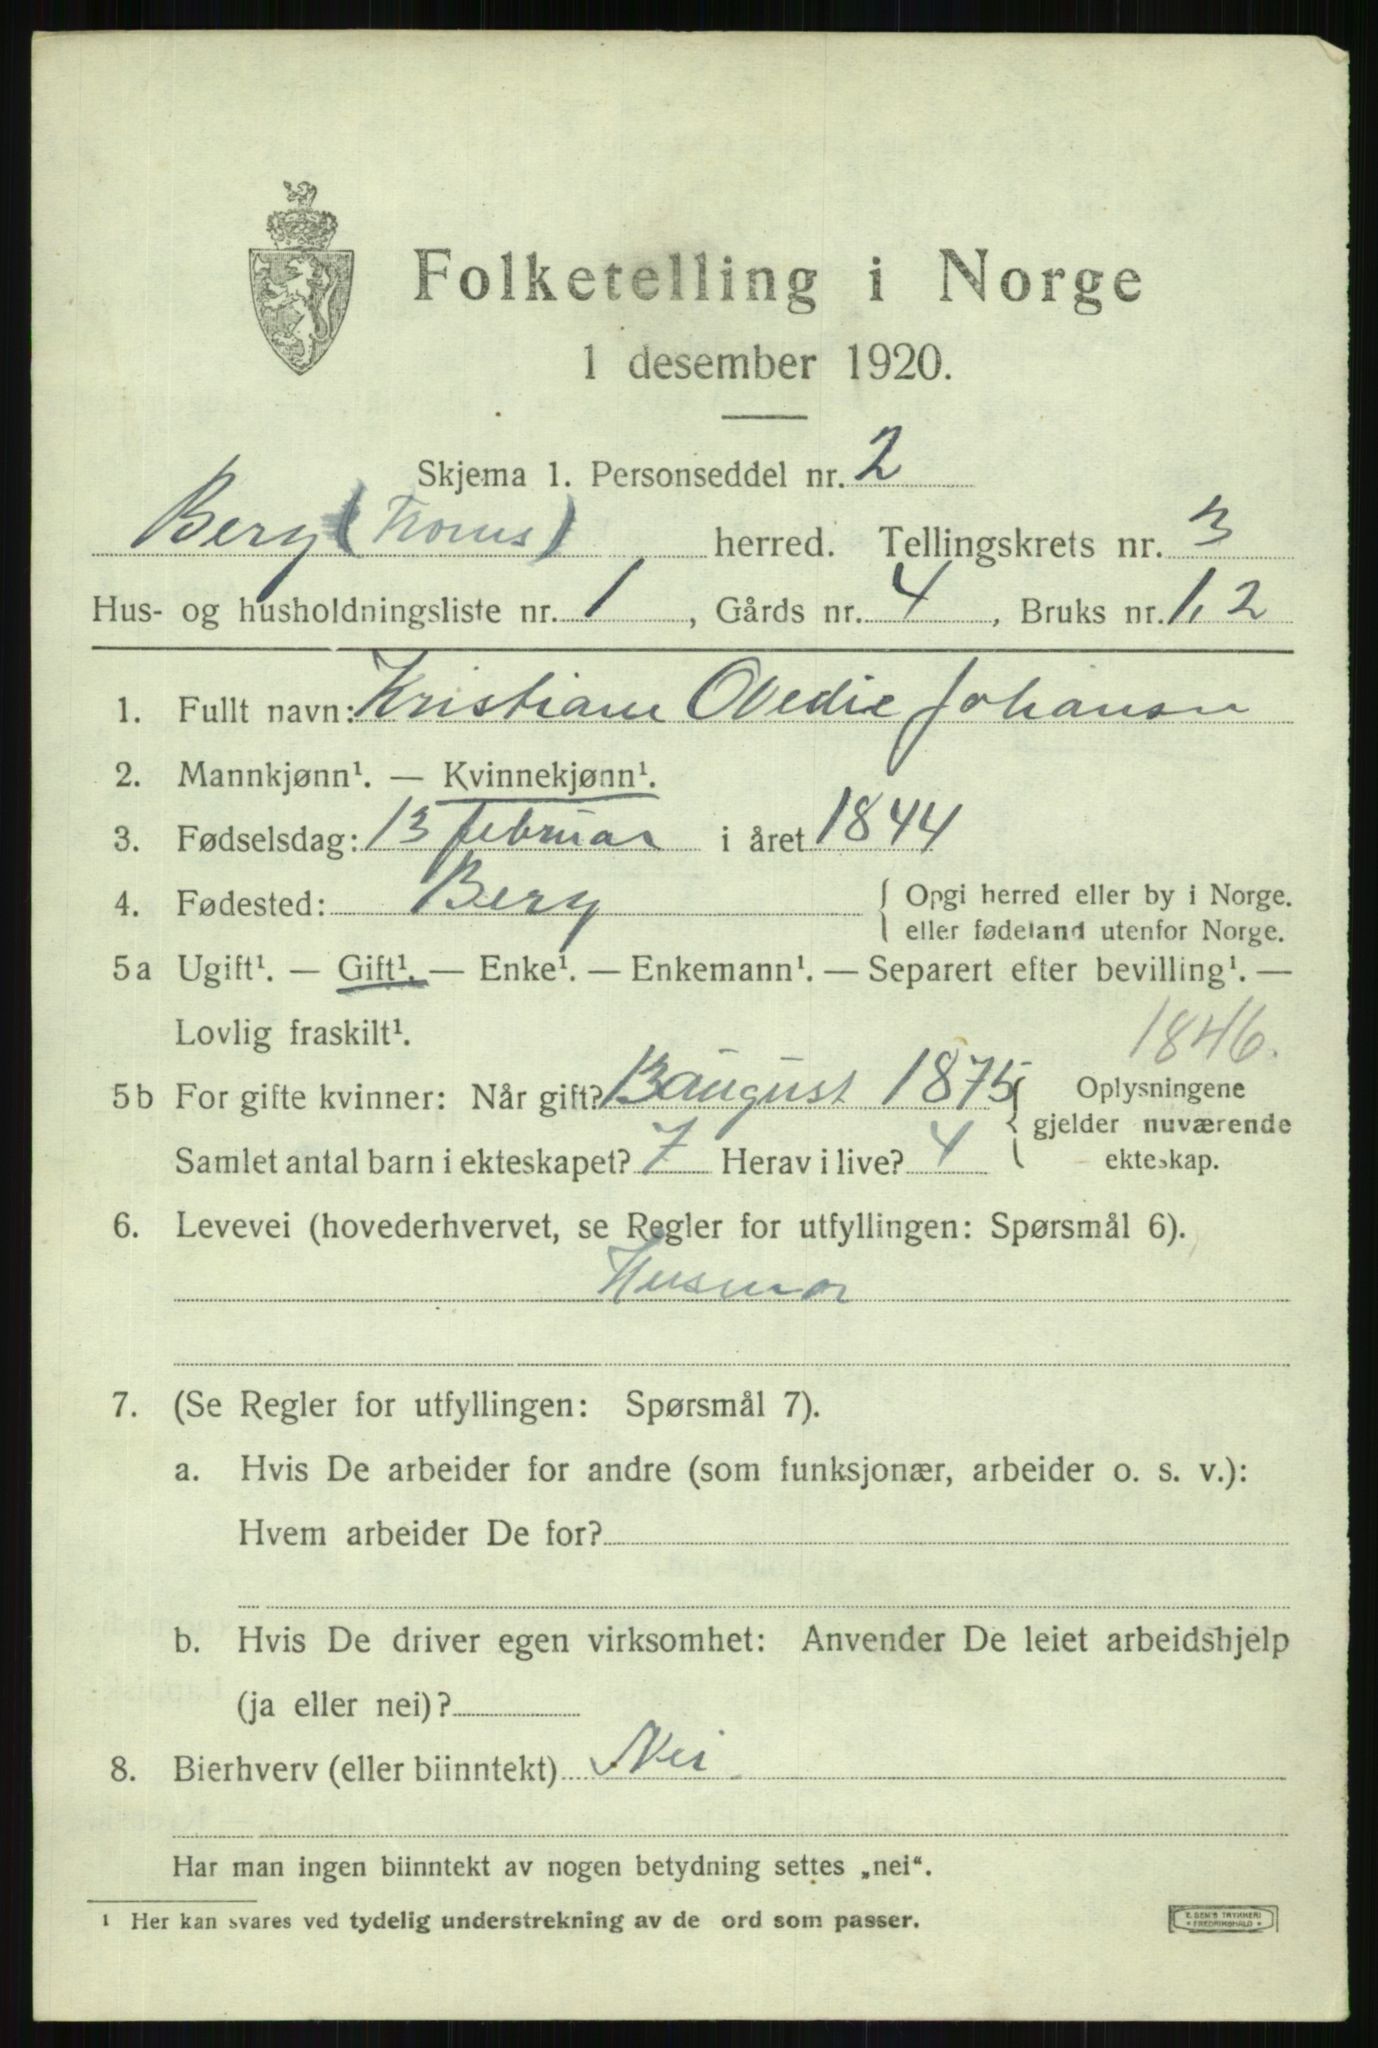 Folketelling i Norge
1 desember 1920.
Skjema 1. Personseddel nr. 2
Berg (Troms) herred. Tellingskrets nr. 3
Hus- og husholdningsliste nr. 1, Gårds nr. 4, Bruks nr. 1, 2
1. Fullt navn: Kristiane Ovedie Johansen
2. Mannkjønn¹. — Kvinnekjønn¹.
3. Fødselsdag: 13 februar i året 1844
4. Fødested: Berg { Opgi herred eller by i Norge.
eller fødeland utenfor Norge.
5a Ugift¹. — Gift¹. — Enke¹. — Enkemann¹. — Separert efter bevilling¹. —
Lovlig fraskilt¹.
1846.
5b For gifte kvinner: Når gift? 13 august 1875 { Oplysningene
gjelder nuværende
Samlet antal barn i ekteskapet? 7 Herav i live? 4 ekteskap.
6. Levevei (hovederhvervet, se Regler for utfyllingen: Spørsmål 6).
Husmor
7. (Se Regler for utfyllingen: Spørsmål 7).
a. Hvis De arbeider for andre (som funksjonær, arbeider o. s. v.):
Hvem arbeider De for?
b. Hvis De driver egen virksomhet: Anvender De leiet arbeidshjelp
(ja eller nei)?
8. Bierhverv (eller biinntekt) Nei
Har man ingen biinntekt av nogen betydning settes „nei“.
¹ Her kan svares ved tydelig understrekning av de ord som passer.
E. SEM'S TRYKKERI
FREDRIKSHALD